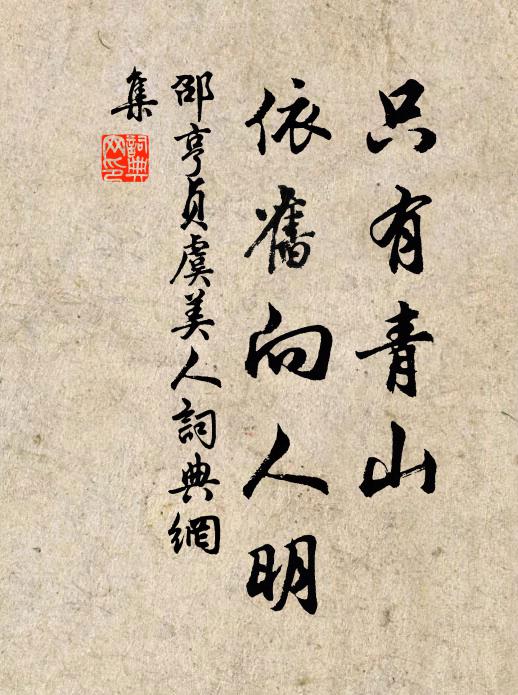 只有青山
依舊向人明
邵亨貞虞美人詞典網
集
詞典
網印